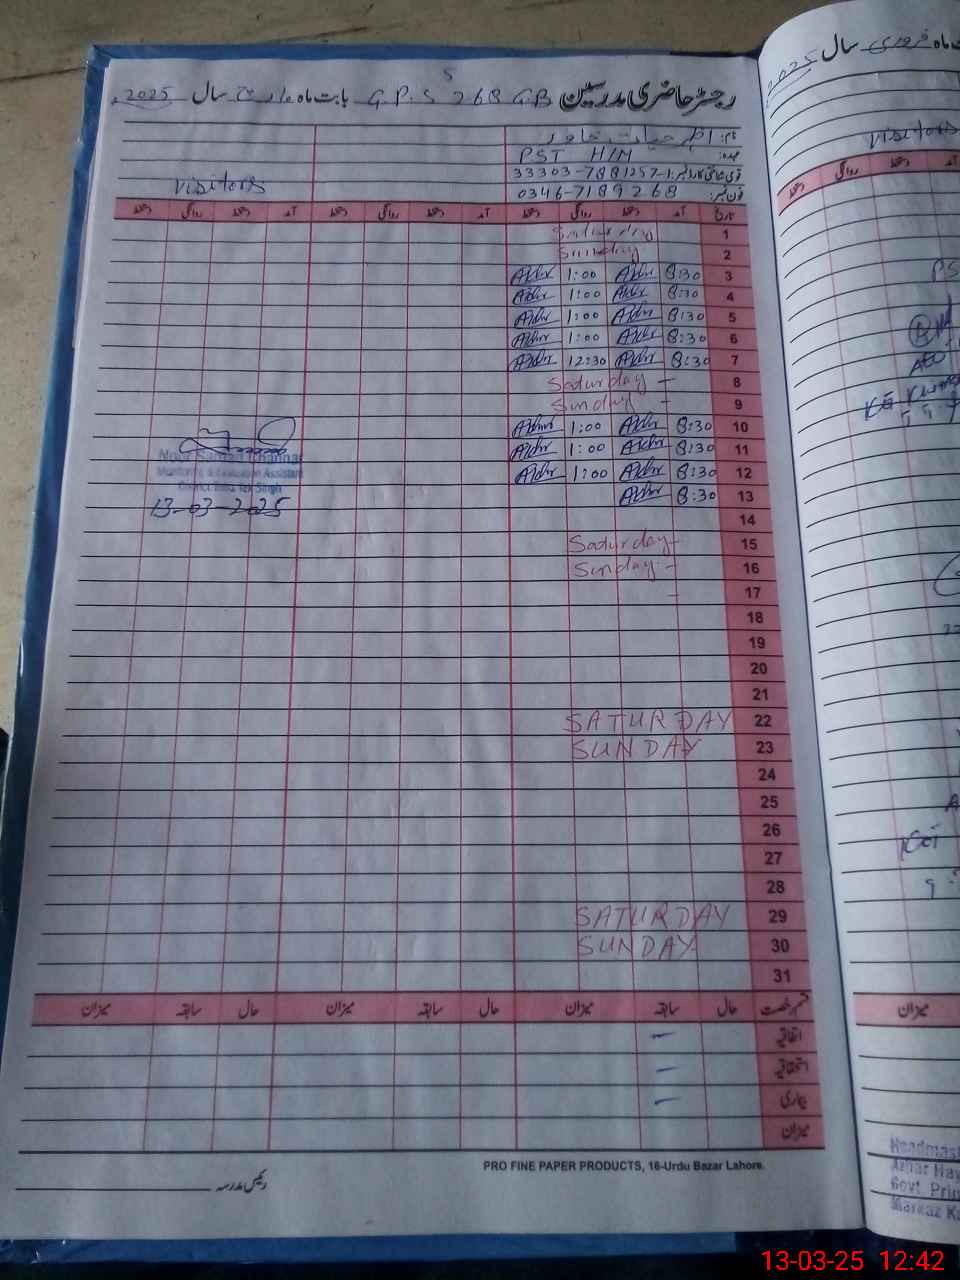 5
رجسٹر حاضری مدرسین G.P.S 268 GB بابت ماہ مارچ سال 2025ء
نام:
عہدہ: PST H/M
قومی شناختی کارڈ نمبر: 33303-7881257-1
فون نمبر: 0346-7189268
visitors
تاریخ آمد دستخط روانگی دستخط آمد دستخط روانگی دستخط آمد دستخط روانگی دستخط
1 Saturday
2 Sunday
3 8:30 Azhr 1:00 Azhr
4 8:30 Azhr 1:00 Azhr
5 8:30 Azhr 1:00 Azhr
6 8:30 Azhr 1:00 Azhr
7 8:30 Azhr 12:30 Azhr
8 Saturday —
9 Sunday -
10 8:30 Azhr 1:00 Azhr
11 8:30 Azhr 1:00 Azhr
12 8:30 Azhr 1:00 Azhr
13 8:30 Azhr
Monitoring & Evaluation Assistant
District Toba Tek Singh
13-03-2025
14
15 Saturday-
16 Sunday -
17 -
18
19
20
21
22 SATURDAY
23 SUNDAY
24
25
26
27
28
29 SATURDAY
30 SUNDAY
31
قسم رخصت حال سابقہ میزان حال سابقہ میزان حال سابقہ میزان
اتفاقیہ —
استحقاقیہ —
بیماری —
میزان
PRO FINE PAPER PRODUCTS, 16-Urdu Bazar Lahore.
رئیس مدرسہ
ماہ فروری سال 2025
visitors
روانگی دستخط
میزان
Headmas
Azhar Hay
Govt. Prim
Markaz K
13-03-25 12:42